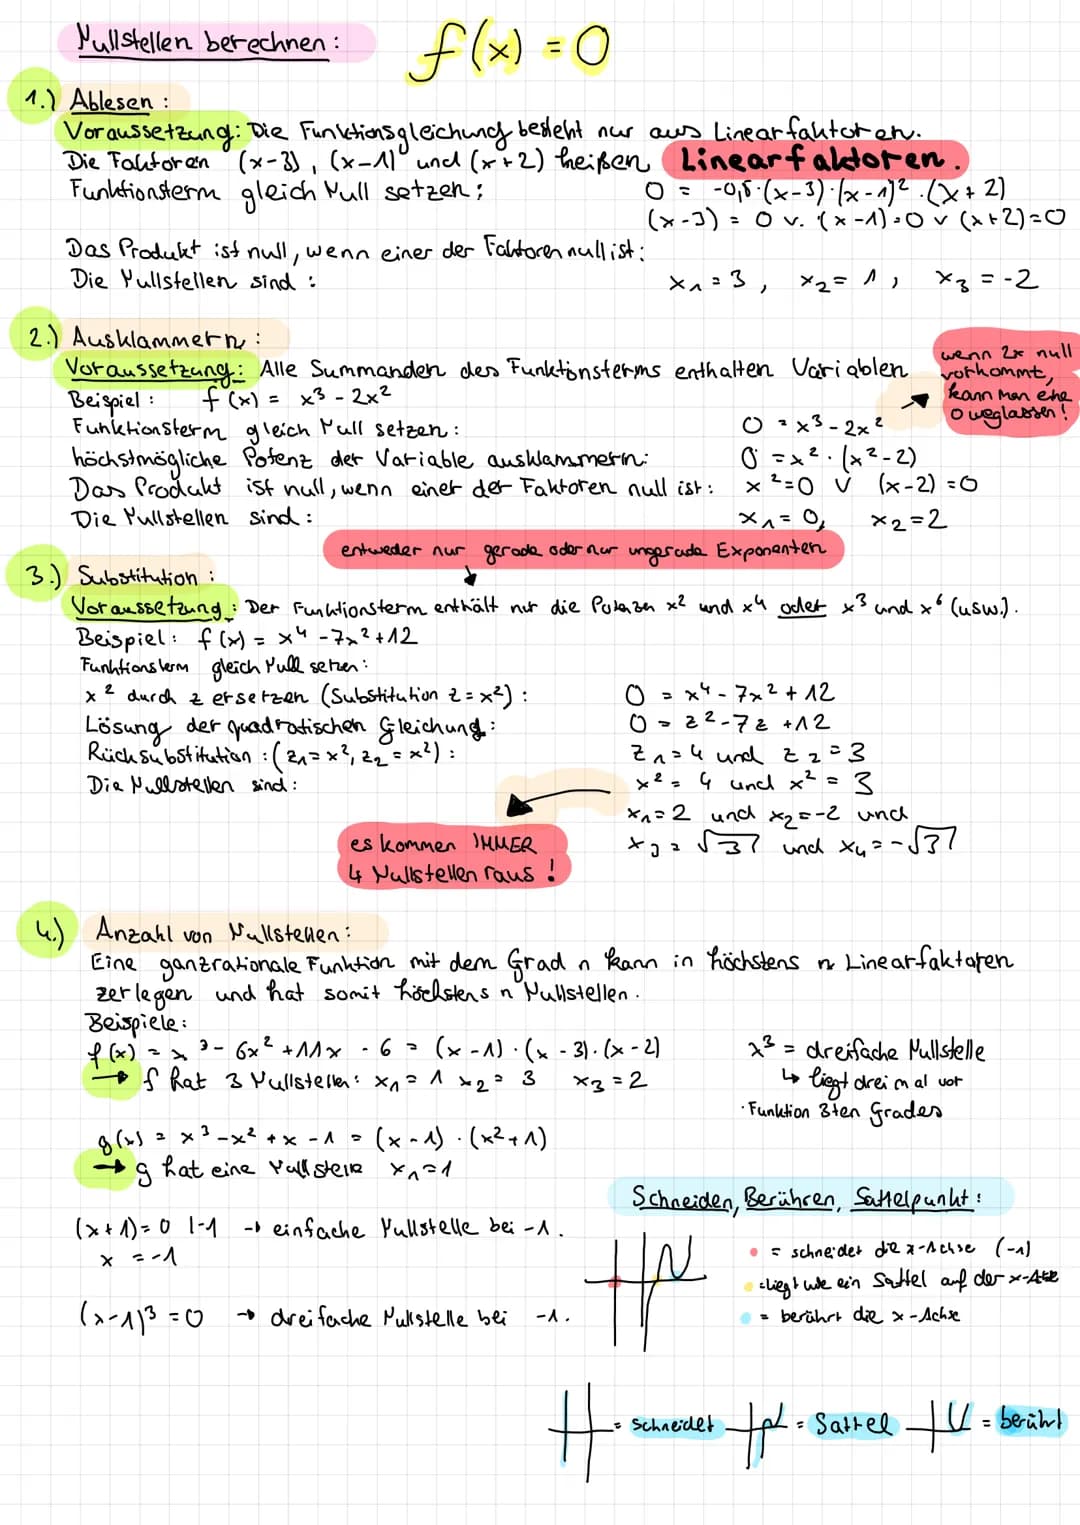 Nullstellen berechnen:
f(x) = 0
1.) Ablesen:
Voraussetzung: Die Funktionsgleichung besteht nur aus Linearfaktoren.
Die Faktoren (x-3), (x-1) und (x+2) heißen Linearfaktoren.
Funktionsterm gleich Null setzen:
0 = -0,5·(x-3)·(x-1)²·(x+2)
(x-3) = 0 v. (x-1)=0 v (x+2)=0
Das Produkt ist null, wenn einer der Faktoren null ist:
Die Nullstellen sind: x₁=3, x₂=1, x₃=-2
2.) Ausklammern:
Voraussetzung: Alle Summanden des Funktionsterms enthalten Variablen
wenn 2x null vorkommt, kann man eine 0 weglassen!
Beispiel: f(x) = x³ - 2x²
Funktionsterm gleich Null setzen: 0 = x³ - 2x²
höchstmögliche Potenz der Variable ausklammern: 0 = x²·(x²-2)
Das Produkt ist null, wenn einer der Faktoren null ist: x²=0 v (x-2)=0
Die Nullstellen sind: x₁=0, x₂=2
entweder nur gerade oder nur ungerade Exponenten
3.) Substitution:
Voraussetzung: Der Funktionsterm enthält nur die Potenzen x² und x⁴ oder x³ und x⁶ (usw.).
Beispiel: f(x) = x⁴ - 7x² + 12
Funktionsterm gleich Null setzen: 0 = x⁴ - 7x² + 12
x² durch z ersetzen (Substitution z = x²): 0 = z² - 7z + 12
Lösung der quadratischen Gleichung: z₁ = 4 und z₂ = 3
Rücksubstitution: (z₁ = x², z₂ = x²): x² = 4 und x² = 3
Die Nullstellen sind: x₁=2 und x₂=-2 und
x₃ = √3 und x₄ = -√3
es kommen IMMER
4 Nullstellen raus!
4.) Anzahl von Nullstellen:
Eine ganzrationale Funktion mit dem Grad n kann in höchstens n Linearfaktoren
zerlegen und hat somit höchstens n Nullstellen.
Beispiele:
f(x) = x³ - 6x² + 11x - 6 = (x-1)·(x-3)·(x-2)
→ f hat 3 Nullstellen: x₁ = 1 x₂ = 3 x₃ = 2
x³ = dreifache Nullstelle
↳ liegt dreimal vor
· Funktion 3ten Grades
g(x) = x³ - x² + x - 1 = (x-1)·(x²+1)
→ g hat eine Nullstelle x₁=1
(x+1) = 0 |-1 → einfache Nullstelle bei -1.
x = -1
(x-1)³ = 0 → dreifache Nullstelle bei -1.
Schneiden, Berühren, Sattelpunkt:
= schneidet die x-Achse (-1)
= liegt wie ein Sattel auf der x-Achse
= berührt die x-Achse
= schneidet = Sattel = berührt